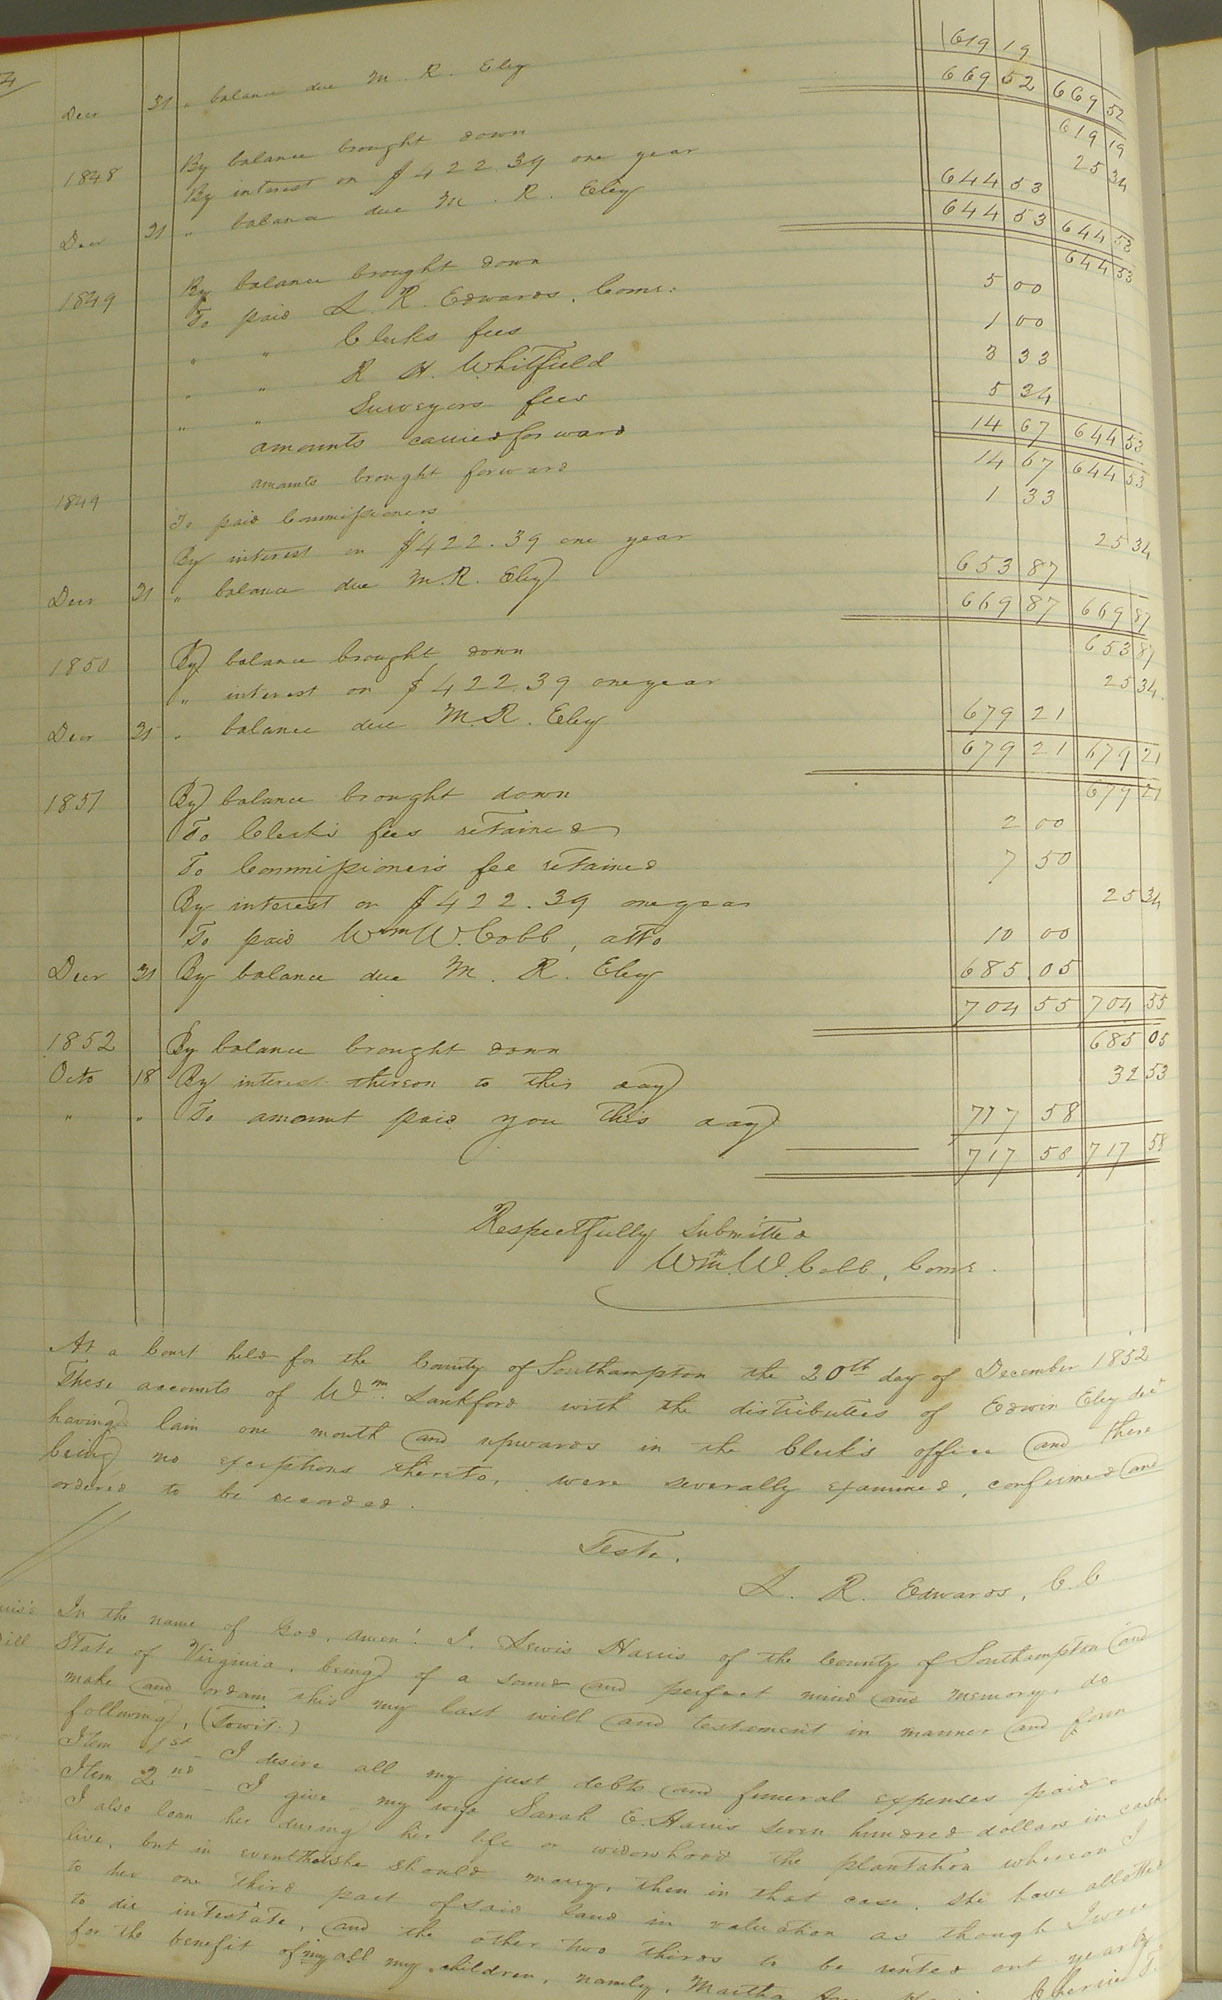 619 19
Decr 31 " balance due M. R. Eley 669 52 669 52
1848 By balance brought down 619 19
By interest on $422.39 one year 25 34
Decr 31 " balance due M. R. Eley 644 53
644 53 644 53
1849 By balance brought down 644 53
To paid L. R. Edwards, Comr. 5 00
" " Clerks fees 1 00
" " R. H. Whitfield 3 33
" " Surveyors fees 5 34
amounts carried forward 14 67 644 53
1849 amounts brought forward 14 67 644 53
To paid Commissioners 1 33
By interest on $422.39 one year 25 34
Decr 31 " balance due M.R. Eley 653 87
669 87 669 87
1850 By balance brought down 653 87
" interest on $422.39 one year 25 34
Decr 31 " balance due M.R. Eley 679 21
679 21 679 21
1851 By balance brought down 679 21
To Clerk's fees retained 2 00
To Commissioner's fee retained 7 50
By interest on $422.39 one year 25 34
To paid Wm W. Cobb, atto 10 00
Decr 31 By balance due M. R. Eley 685 05
704 55 704 55
1852 By balance brought down 685 05
Octo 18 By interest thereon to this day 32 53
" " To amount paid you this day 717 58
717 58 717 58
Respectfully submitted
Wm. W. Cobb, Comr.
At a Court held for the County of Southampton the 20th day of December 1852
These accounts of Wm. Lankford with the distributees of Edwin Eley decd
having lain one month and upwards in the Clerk's office and there
being no exceptions thereto, were severally examined, confirmed and
ordered to be recorded.
Teste,
L. R. Edwards, C.C.
In the name of God, amen! I, Lewis Harris of the County of Southampton and
State of Virginia, being of a sound and perfect mind and memory, do
make and ordain this my last will and testament in manner and form
following, (Towit:)
Item 1st - I desire all my just debts and funeral expenses paid.
Item 2nd - I give my wife Sarah E. Harris seven hundred dollars in cash.
I also loan her during her life or widowhood the plantation whereon I
live, but in event that she should marry, then in that case, she have allotted
to her one third part of said land in valuation as though I were
to die intestate, and the other two thirds to be rented out yearly
for the benefit of my all my children, namely, Martha